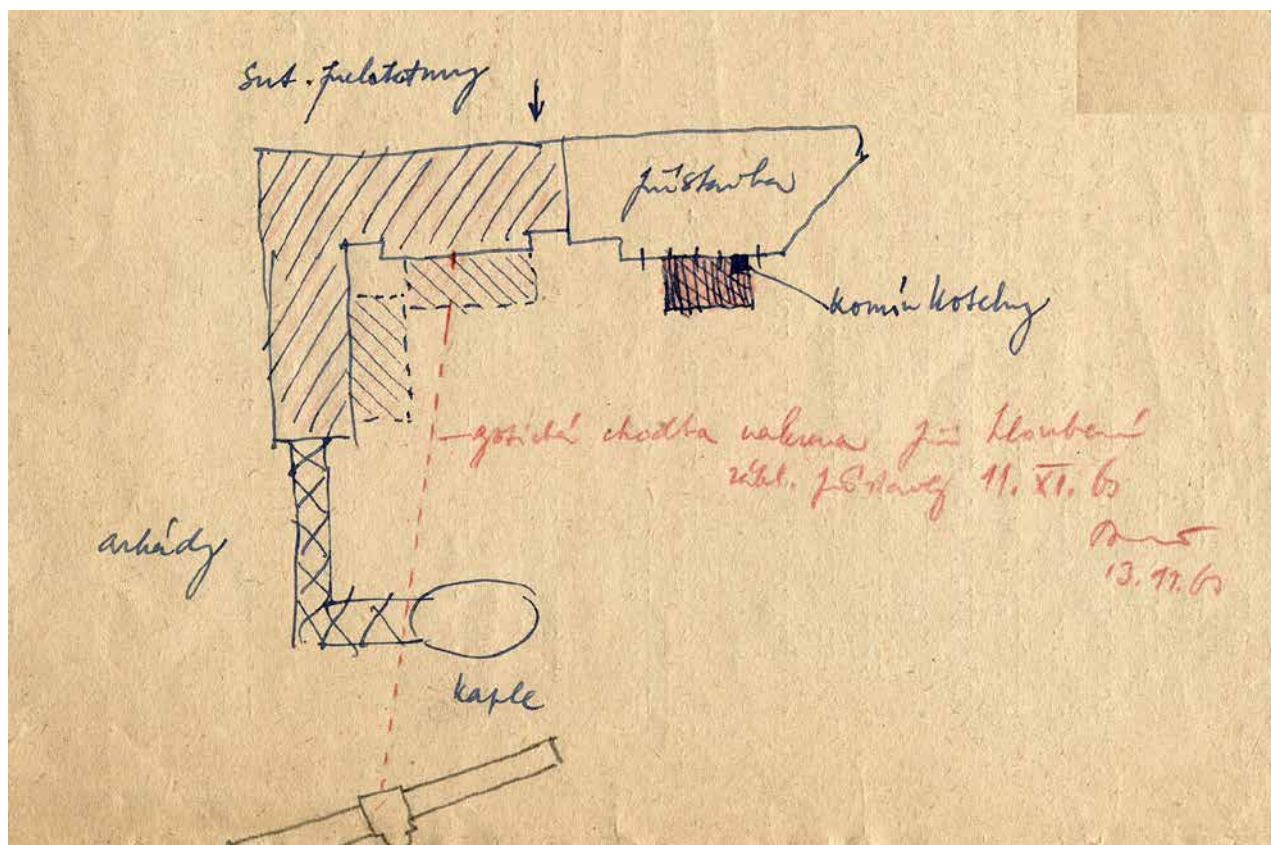 přístavba
komín kotelny
gotická chodba
při hloubení
zákl. přístavby 11. XI. 60
13. 11. 60
arkády
kaple